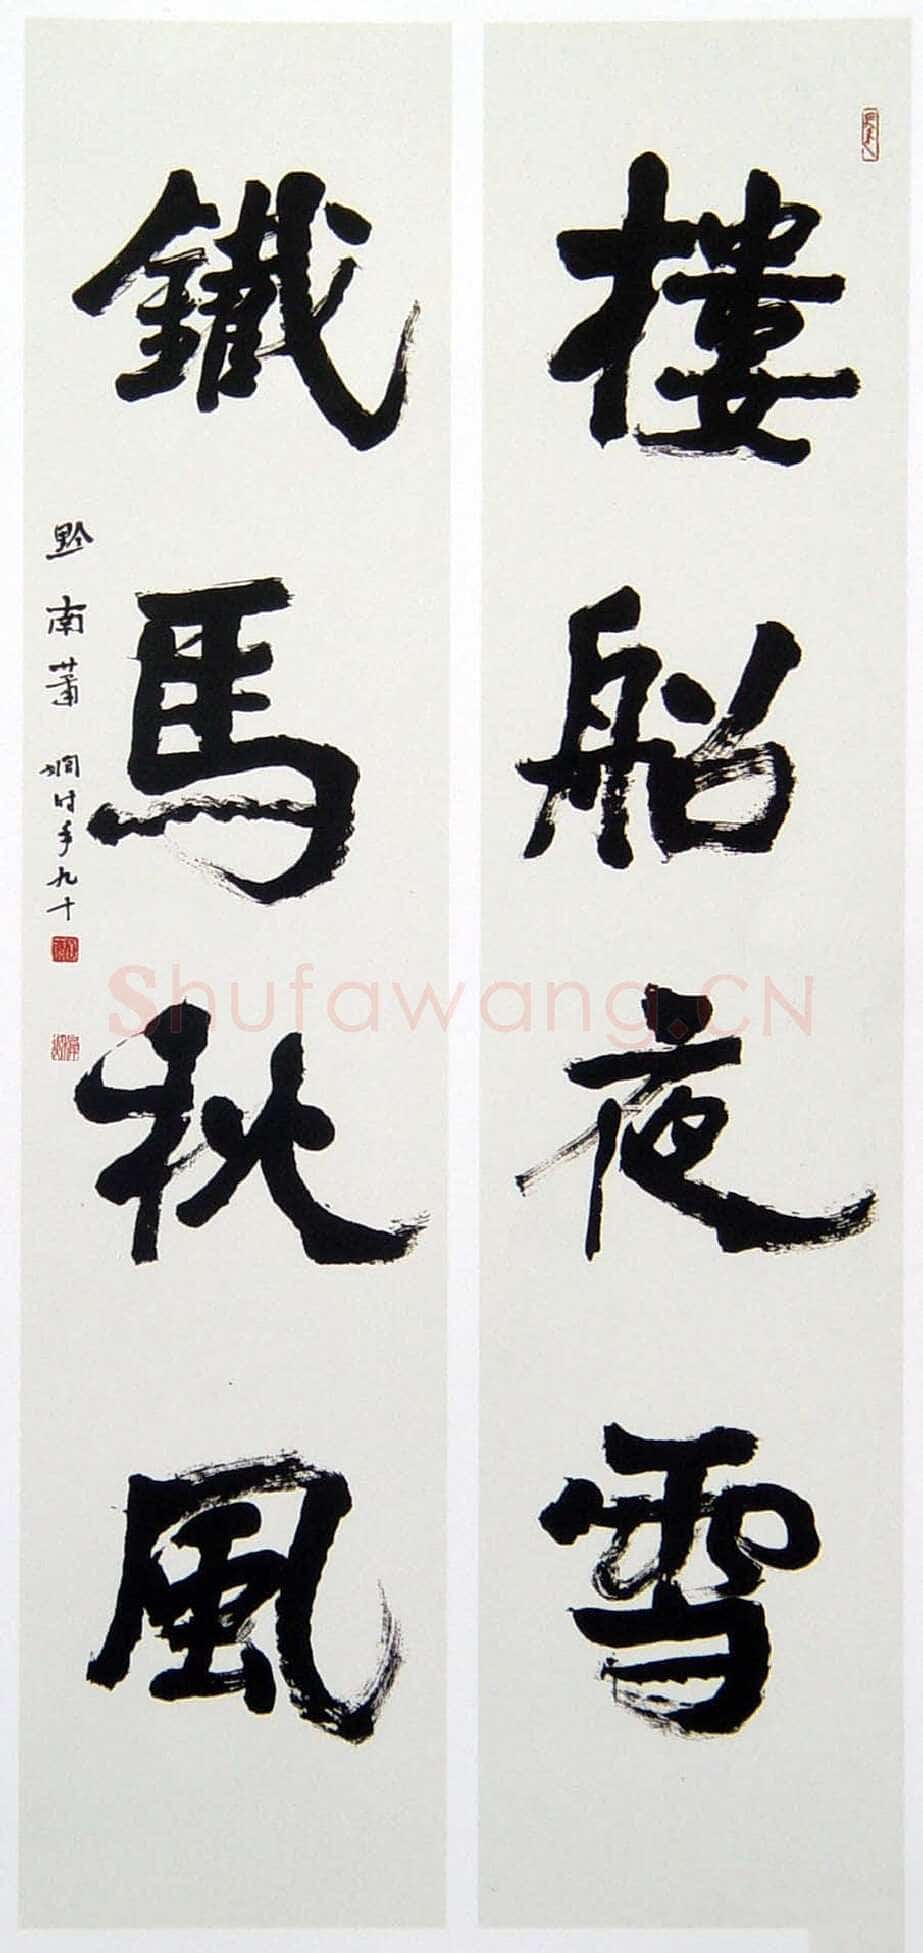 樓船夜雪
鐵馬秋風
黔南蕭嫻時年九十
Shufawang.CN